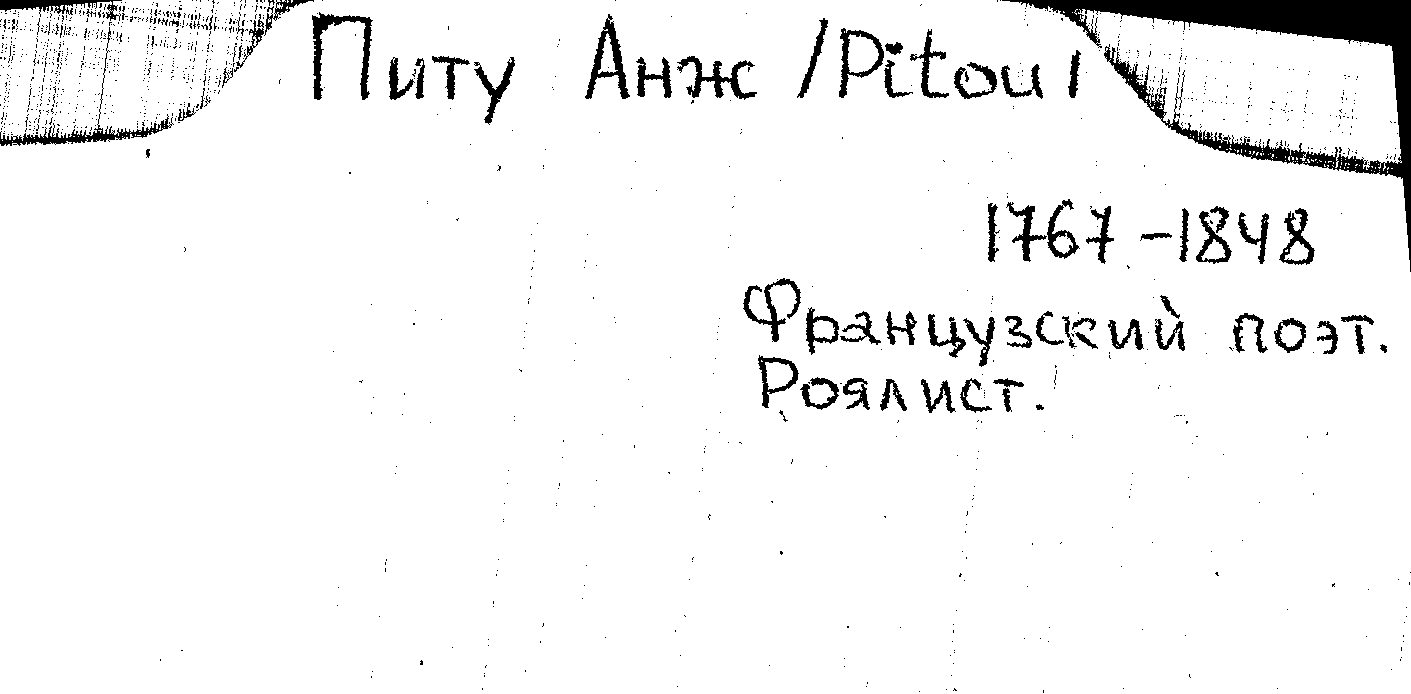 Питу Анж /Pitou/
1767-1848
Французский поэт.
Роялист.